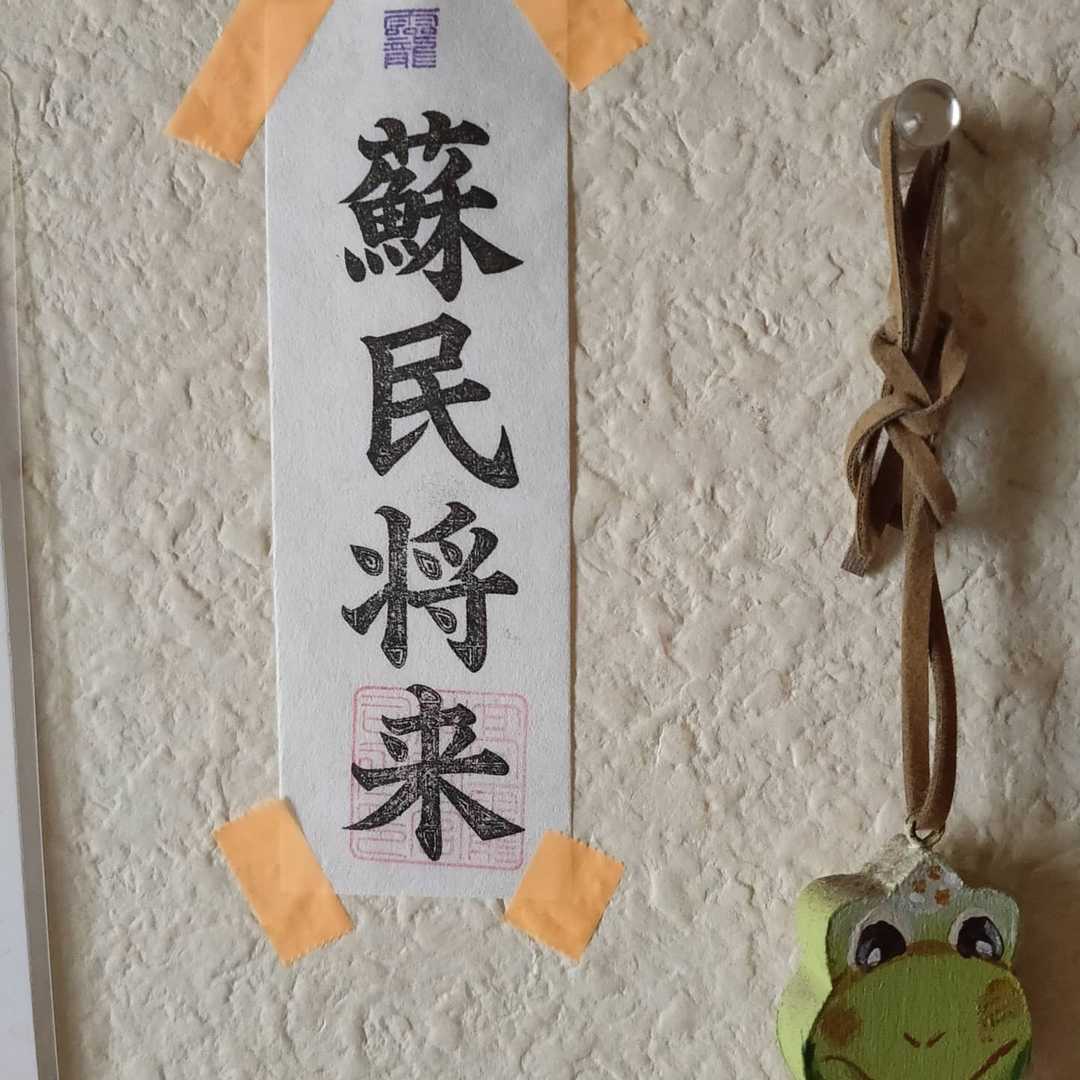 蘇民将来